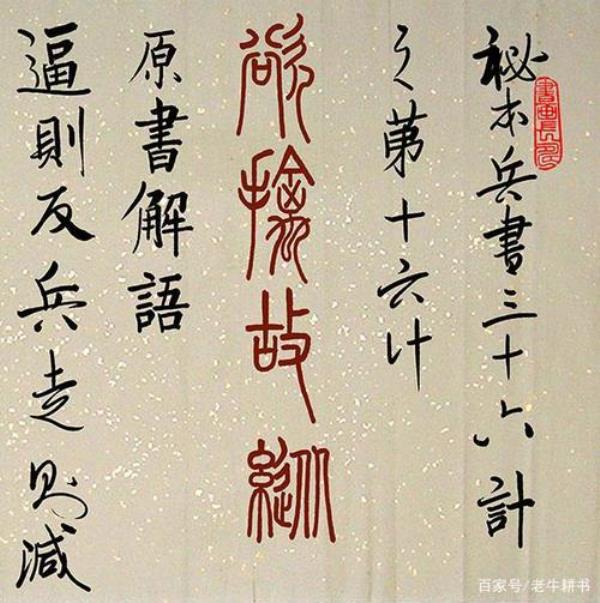 秘本兵書三十六計
之第十六计
欲擒故縱
原書解語
逼則反兵走则減
百家号/老牛耕书